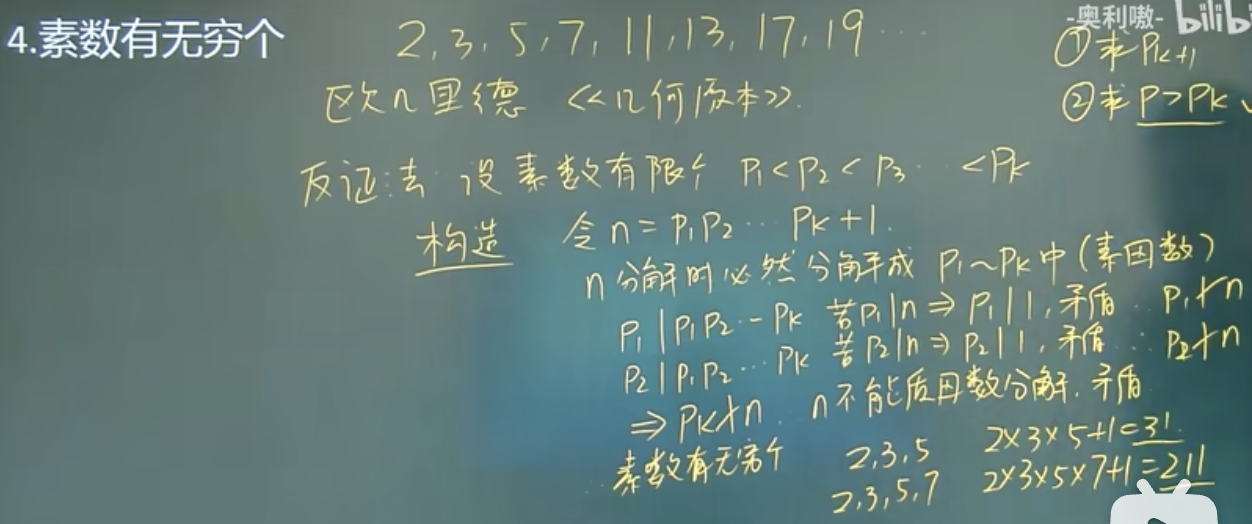 4.素数有无穷个
2,3,5,7,11,13,17,19……
-奥利嗷- bilibi
① 求 Pk+1
② 求 P>Pk ✓
欧几里德 <<几何原本>>.
反证法 设素数有限个 P₁<P₂<P₃…<Pk
构造 令 n=P₁P₂…Pk+1.
n分解时必然分解成 P₁~Pk中(素因数)
P₁|P₁P₂…Pk 若P₁|n⇒P₁|1,矛盾∴P₁∤n
P₂|P₁P₂…Pk 若P₂|n⇒P₂|1,矛盾∴P₂∤n
⇒Pk∤n∴n不能质因数分解.矛盾
∴素数有无穷个
2,3,5 2×3×5+1=31
2,3,5,7 2×3×5×7+1=211